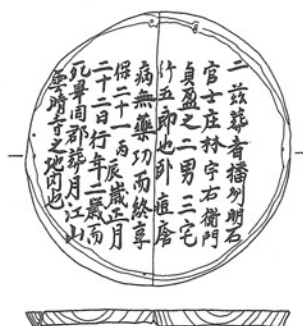 二茲葬者播州明石
官士庄林宇右衛門
貞盈之二男三宅
竹五郎也卧痘瘡
病無藥功而終享
保二十一丙辰歳正月
二十二日行年二歳而
死畢同郡葬月江山
雲晴寺之地内也